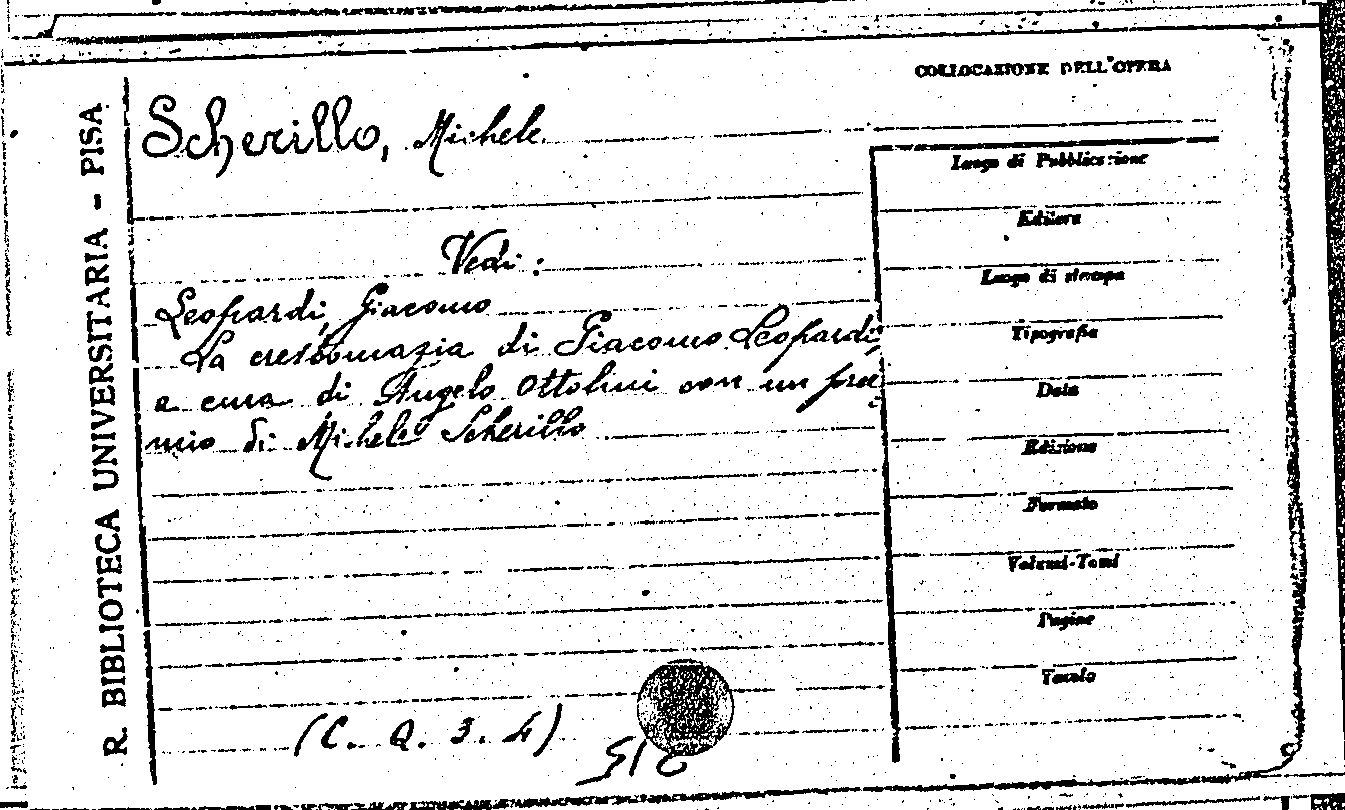 R. BIBLIOTECA UNIVERSITARIA - PISA
COLLOCAZIONE DELL'OPERA
Scherillo, Michele
Vedi:
Leopardi, Giacomo
La crestomazia di Giacomo Leopardi
a cura di Angelo Ottolini con un proe
mio di Michele Scherillo
(C. Q. 3. 4)
Luogo di Pubblicazione
Editore
Luogo di stampa
Tipografia
Data
Edizione
Formato
Volumi-Tomi
Pagine
Tavole